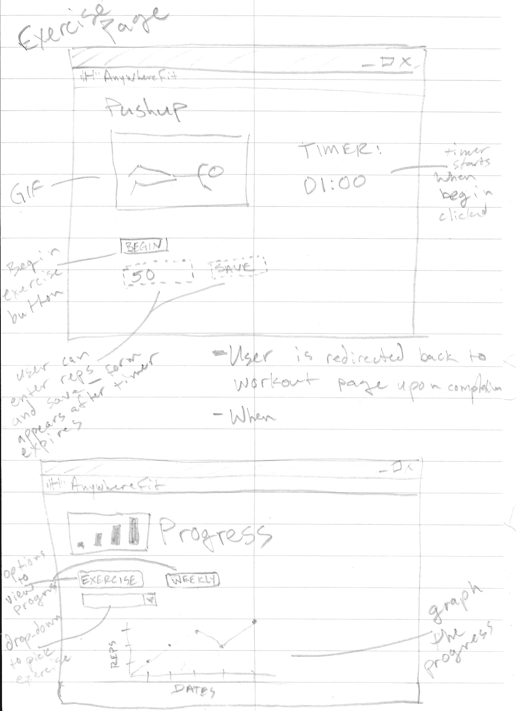 Exercise
Page
AnywhereFit
Pushup
TIMER:
01:00
timer
starts
when
begin
clicked
GIF
BEGIN
50
SAVE
Begin
exercise
button
user can
enter reps
and save - form
appears after timer
expires
- User is redirected back to
workout page upon completion
- When
AnywhereFit
Progress
options
to
view
progress
EXERCISE
WEEKLY
dropdown
to pick
exercise
REPS
DATES
graph
the
progress